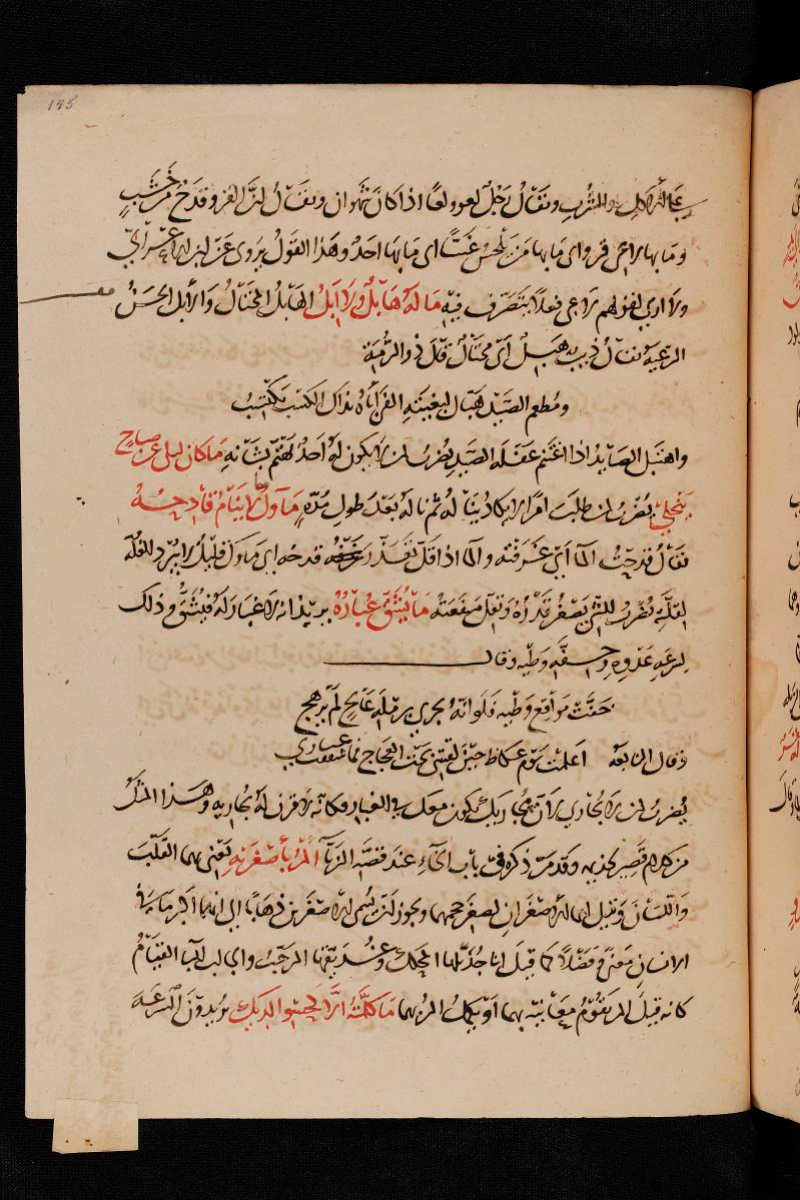 145
على الأكل والشرب ويقال رجل لعو ولعا اذا كان شهوان ويقال للعزّ القرو قدح من خشب
وما بها لاعى قرو اى ما بها من يلحس عسًّا اى ما بها احد وهذا القول يروى عن ابن الاعرابي
ولا ارى لقولهم لاعى فعلا يتصرف فيه ما له هابل ولا ابل الهابل المحتال والآبل الحسن
الرعية يقال ذيب هبل اى محتال قال ذو الرمة
ومطعم الصيد هبال لبغيته الفى أباه بذاك الكسب يكتسب
واهتبل الصايد اذا اغتنم غفلة الصيد يضرب لمن لا يكون له احد يهتم بشانه ما كان ليلى عن صباح
ينجلي يضرب لمن طلب امرا لا يكاد يناله ثم ناله بعد طول مدة ما ول لا ينام قادحه
يقال قدحت الماء اى غرفته والماء اذا قل تعذر قدحه اى ماوك قليل لا يبرد الغلة
لقلته يضرب للشى يصغر قدره وتقل منفعته ما يشق غباره يريد انه لا غبار له فيشق وذلك
لسرعة عدوه وخفة وطيه وقال
خفت مواقع وطيه فلو انه يجري برملة عالج لم يرهج
وقال النابغة اعلمت يوم عكاظ حين لقيتني تحت العجاج فما شققت غباري
يضرب لمن لا يجارى لان مجاريك يكون معك في الغبار فكانه لا قرن له يجاريه وهذا المثل
من كلام قصير لجذيمة وقد مر ذكره في باب الخاء عند قصة الزباء المرء بأصغريه يعنى بهما القلب
واللسان وقيل لهما الاصغران لصغر حجمهما ويجوز ان يسمى الاصغرين ذهابا الى انهما اكبر ما في
الانسان معنى وفضلا كما قيل انا جذيلها المحكك وعذيقها المرجب والجالب للبا القيام
كانه قيل المرء يقوم معانيه بهما او يكمل المرء بهما ما كلمته الا كحسو الديك يريدون السرعة